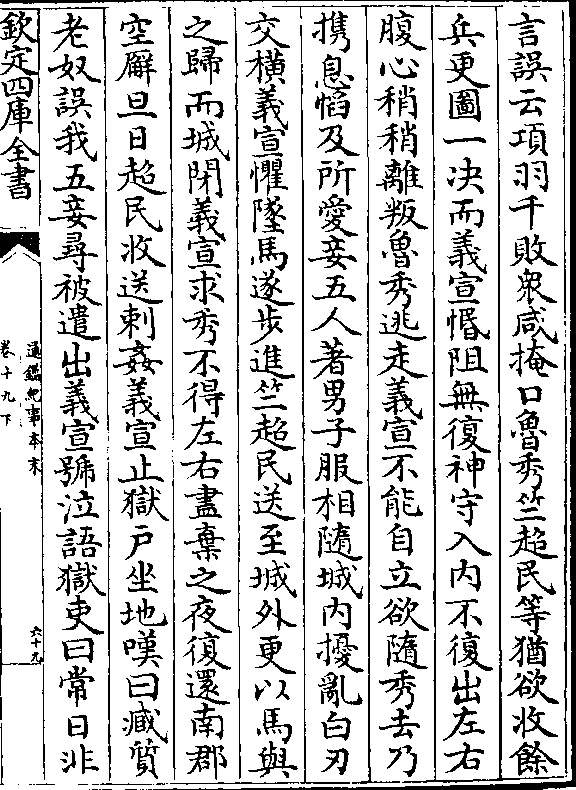 言誤云項羽千敗衆咸掩口魯秀竺超民等猶欲收餘
兵更圖一决而義宣惛阻無復神守入内不復出左右
腹心稍稍離叛魯秀逃走義宣不能自立欲隨秀去乃
携息慆及所愛妾五人著男子服相隨城内擾亂白刃
交橫義宣懼墜馬遂步進竺超民送至城外更以馬與
之歸而城閉義宣求秀不得左右盡棄之夜復還南郡
空廨旦日超民收送刺姦義宣止獄戸坐地嘆曰臧質
老奴誤我五妾尋被遣出義宣號泣語獄吏曰常日非
欽定四庫全書
通鑑紀事本末
卷十九下
六十九